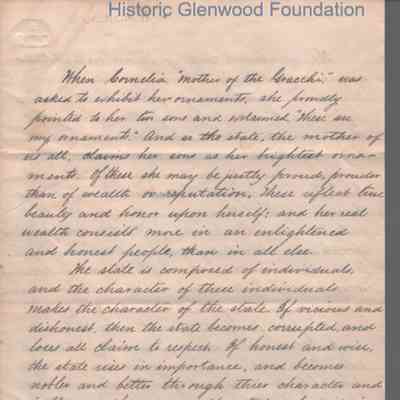 Historic Glenwood Foundation
When Cornelia "mother of the Gracchi," was
asked to exhibit her ornaments, she proudly
pointed to her two sons and exclaimed "these are
my ornaments." And so the state, the mother of
us all, claims her sons as her brightest orna-
ments. Of these she may be justly proud, prouder
than of wealth or reputation, these reflect true
beauty and honor upon herself; and her real
wealth consists more in an enlightened
and honest people, than in all else.
The state is composed of individuals,
and the character of these individuals
makes the character of the state. If vicious and
dishonest, then the state becomes corrupted, and
loses all claim to respect. If honest and wise,
the state rises in importance, and becomes
nobler and better through their character and